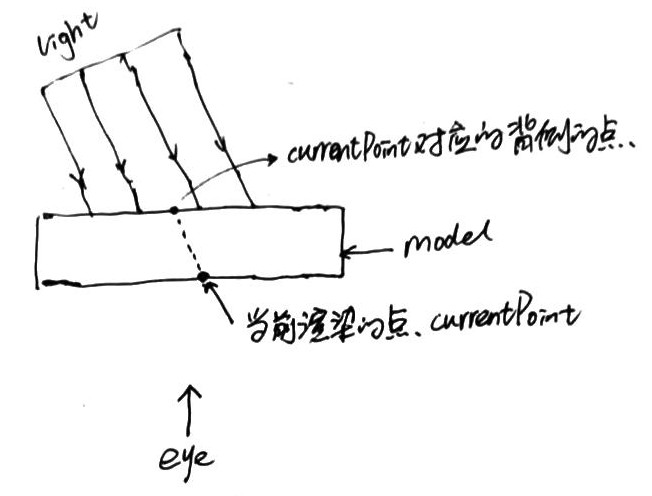 Light
currentPoint对应的背侧的点、
model
当前渲染的点、currentPoint
eye